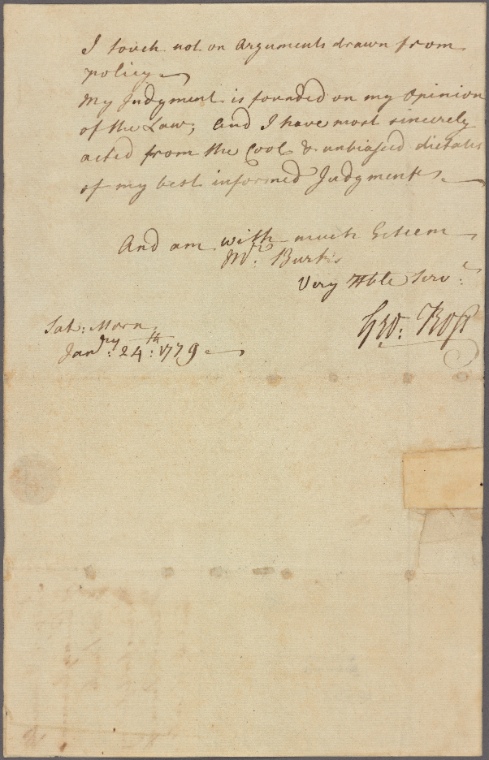 I touch not on Arguments drawn from
policy
My Judgment is founded on my Opinion
of the Law; And I have most sincerely
acted from the Cool & unbiased dictates
of my best informed Judgment.
And am with much Esteem
Mr. Burk's
Very Hble Serv.t
Geo: Ross
Sat: Morn,
Janry. 24th. 1779